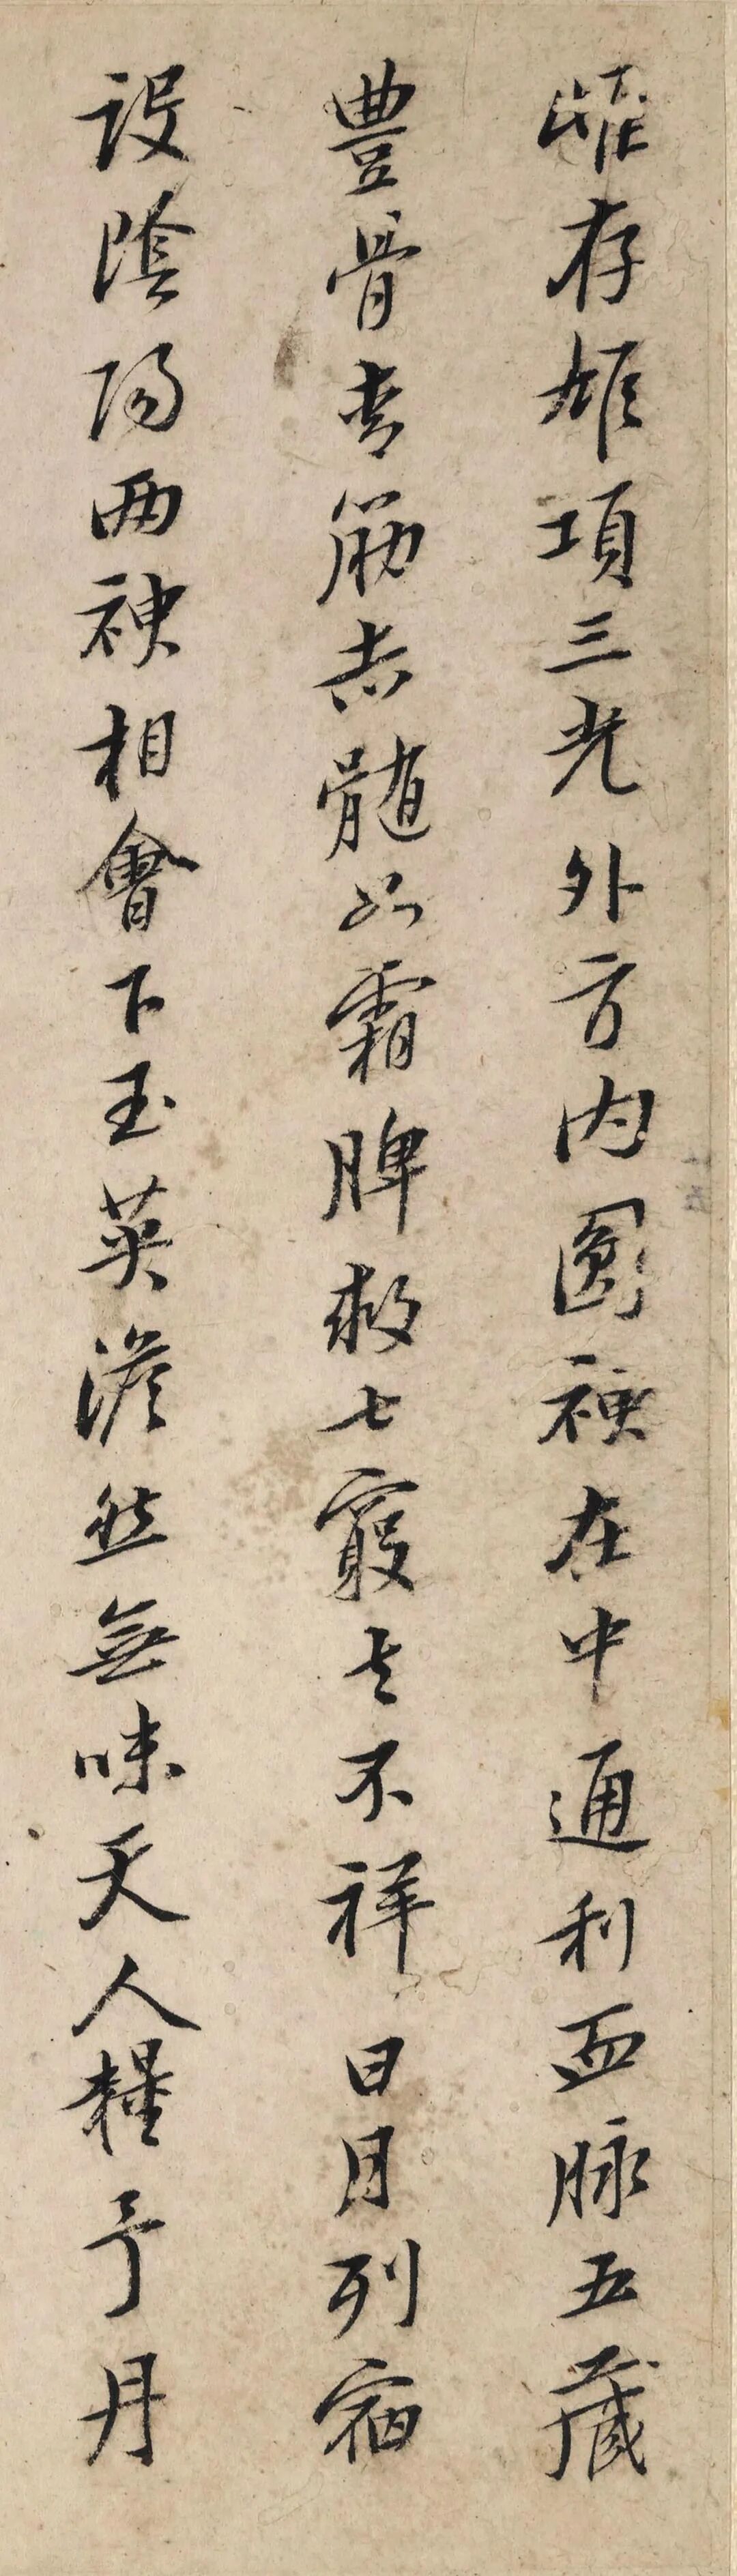 雌存雄項三光外方内圓神在中通利血脉五藏
豊骨青筋赤髓如霜脾救七竅去不祥日月列宿
設隂陽兩神相會下玉英澹然無味天人糧子丹